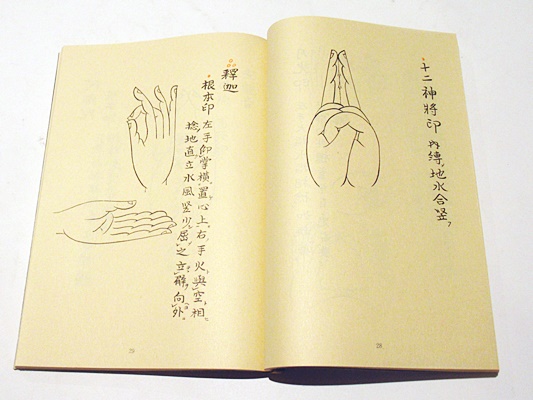 十二神將印 内縛地水合竪
釋迦
根本印 左手仰掌横置心上右手火與空相
捻地直立水風竪少屈之立臂向外
28
29